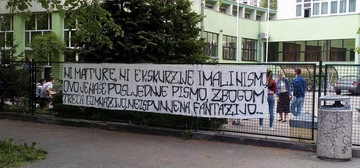 NI MATURE, NI EKSKURZIJE IMALI NISMO
OVO JE NAŠE POSLJEDNJE PISMO, ZBOGOM
TREĆA GIMNAZIJO, NEISPUNJENA FANTAZIJO...